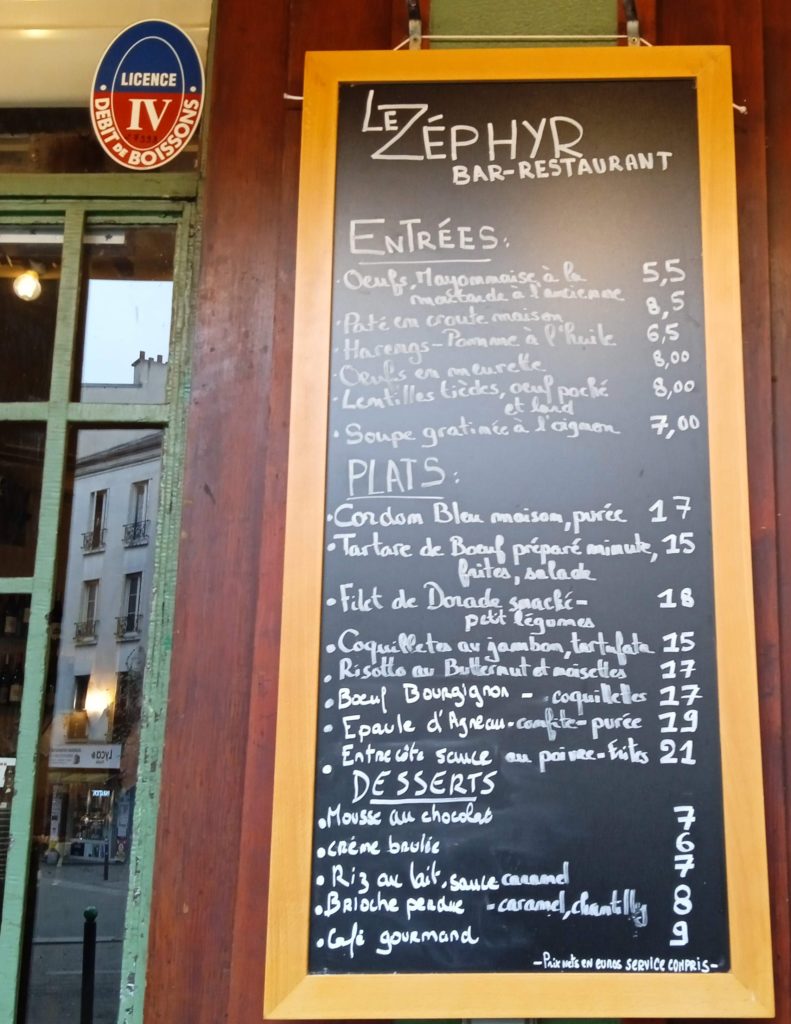 LICENCE
IV
DEBIT de BOISSONS
LE ZÉPHYR
BAR-RESTAURANT
ENTRÉES:
• Oeufs, Mayonnaise à la 5,5
moutarde à l'ancienne
• Paté en croute maison 8,5
• Harengs - Pomme à l'huile 6,5
• Oeufs en meurette 8,00
• Lentilles tièdes, oeuf poché 8,00
et lard
• Soupe gratinée à l'oignon 7,00
PLATS:
• Cordon Bleu maison, purée 17
• Tartare de Boeuf préparé minute, 15
frites, salade
• Filet de Dorade snacké - 18
petit légumes
• Coquillettes au jambon, tartufata 15
• Risotto au Butternut et noisettes 17
• Boeuf Bourgignon - coquillettes 17
• Epaule d'Agneau - confite - purée 19
• Entrecôte sauce au poivre - frites 21
DESSERTS
• Mousse au chocolat 7
• crème brulée 6
• Riz au lait, sauce caramel 7
• Brioche perdue - caramel, chantilly 8
• Café gourmand 9
- Prix nets en euros SERVICE COMPRIS -
Lyca